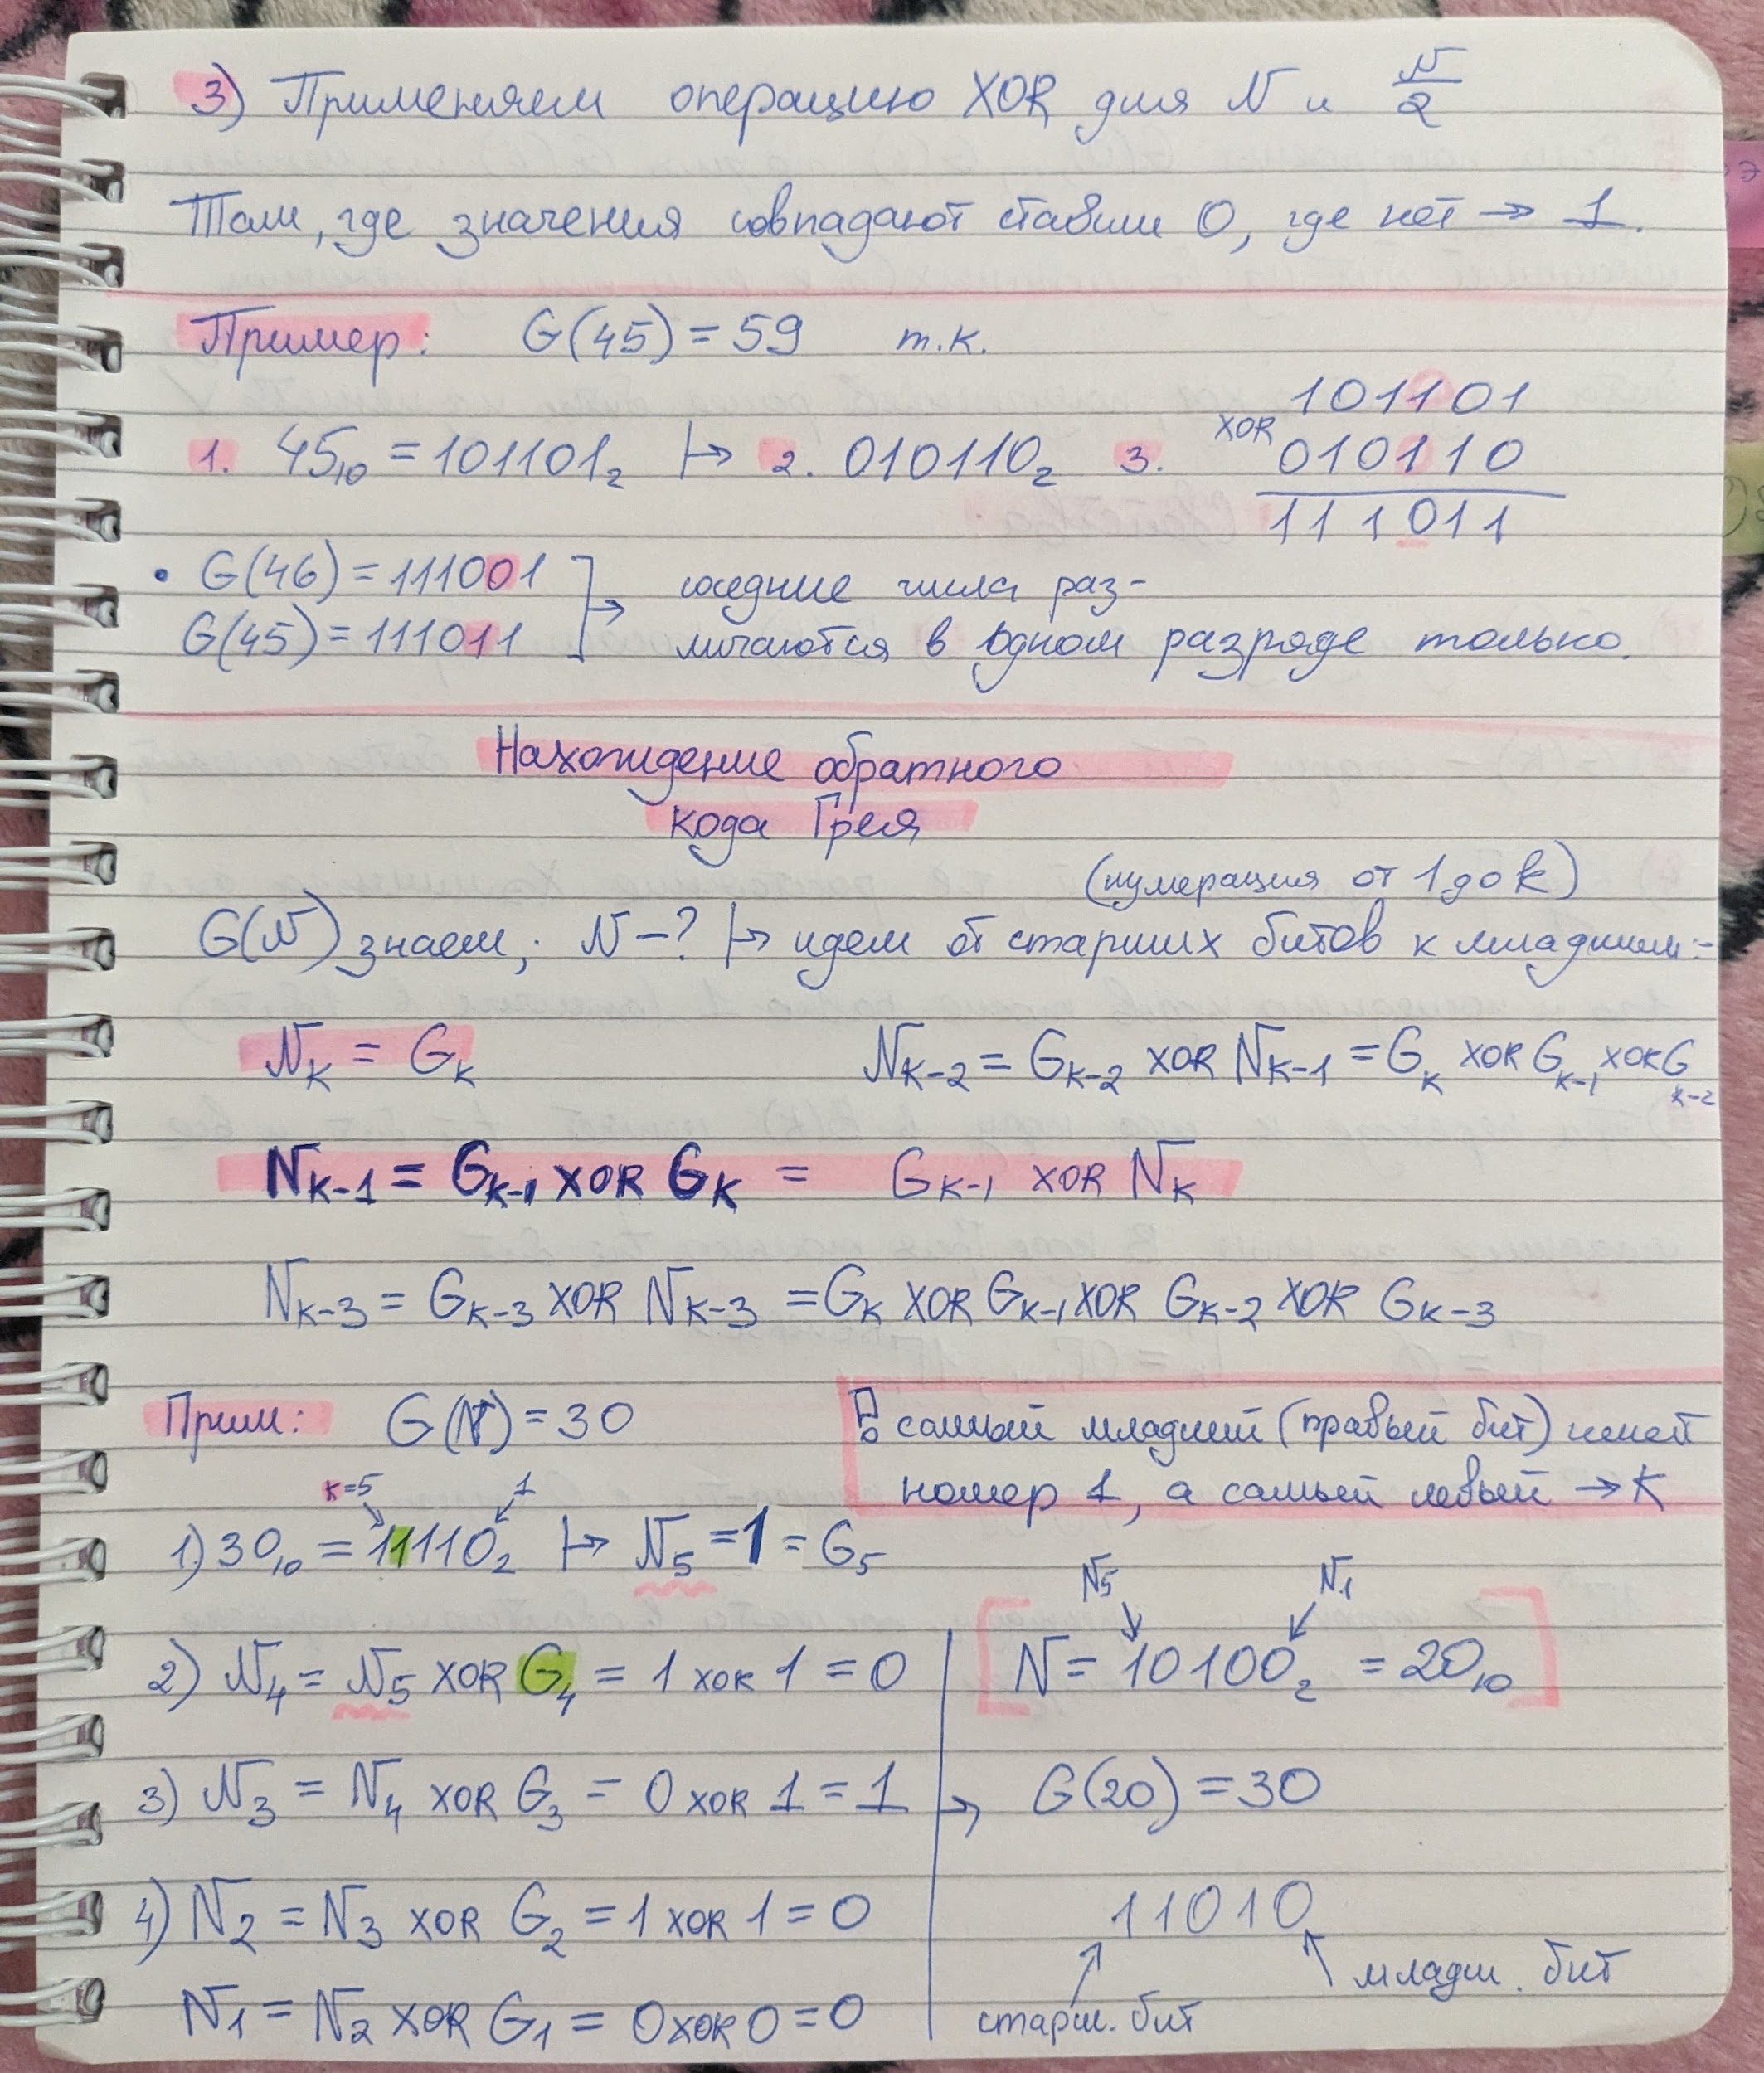 3) Применяем операцию XOR для N и N/2
Там, где значения совпадают ставим 0, где нет → 1.
Пример: G(45) = 59 т.к.
1. 45₁₀ = 101101₂ ↦ 2. 010110₂ 3.
101101
XOR
010110
111011
• G(46) = 111001
G(45) = 111011
→ соседние числа раз-
личаются в одном разряде только.
Нахождение обратного
кода Грея
(нумерация от 1 до k)
G(N) знаем, N – ? ↦ идем от старших битов к младшим:
N_K = G_K
N_K-2 = G_K-2 XOR N_K-1 = G_K XOR G_K-1 XOR G_K-2
N_K-1 = G_K-1 XOR G_K = G_K-1 XOR N_K
N_K-3 = G_K-3 XOR N_K-3 = G_K XOR G_K-1 XOR G_K-2 XOR G_K-3
Прим: G(N) = 30
! самый младший (правый бит) имеет
номер 1, а самый левый → K
K=5 1
1) 30₁₀ = 11110₂ ↦ N₅ = 1 = G₅
N5 N1
2) N₄ = N₅ XOR G₄ = 1 XOR 1 = 0
N = 10100₂ = 20₁₀
3) N₃ = N₄ XOR G₃ = 0 XOR 1 = 1
→ G(20) = 30
4) N₂ = N₃ XOR G₂ = 1 XOR 1 = 0
11010
младш. бит
N₁ = N₂ XOR G₁ = 0 XOR 0 = 0
старш. бит